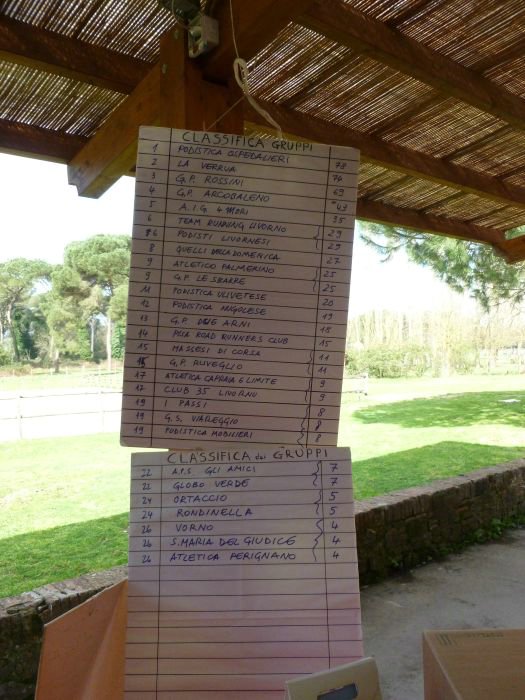 CLASSIFICA GRUPPI
1 PODISTICA OSPEDALIERI 78
2 LA VERRUA 74
3 G.P. ROSSINI 69
4 G.P. ARCOBALENO 43
5 A.I.G. 4 MORI 35
6 TEAM RUNNING LIVORNO 29
6 PODISTI LIVORNESI 29
8 QUELLI DELLA DOMENICA 27
9 ATLETICO PALMERINO 25
9 G.P. LE SBARRE 25
11 PODISTICA ULIVETESE 20
12 PODISTICA 19
13 G.P. DUE ARNI 18
14 PISA ROAD RUNNERS CLUB 15
15 MASSESI DI CORSA 11
G.P. RUVEGLIO 11
17 ATLETICA CAPRAIA E LIMITE 9
17 CLUB 35 LIVORNO 9
19 I PASSI 8
19 G.S. VAREGGIO 8
19 PODISTICA MOBILIERI 8
CLASSIFICA dei GRUPPI
22 A.P.S GLI AMICI 7
22 GLOBO VERDE 7
24 ORTACCIO 5
24 RONDINELLA 5
26 VORNO 4
26 S. MARIA DEL GIUDICE 4
26 ATLETICA PERIGNANO 4